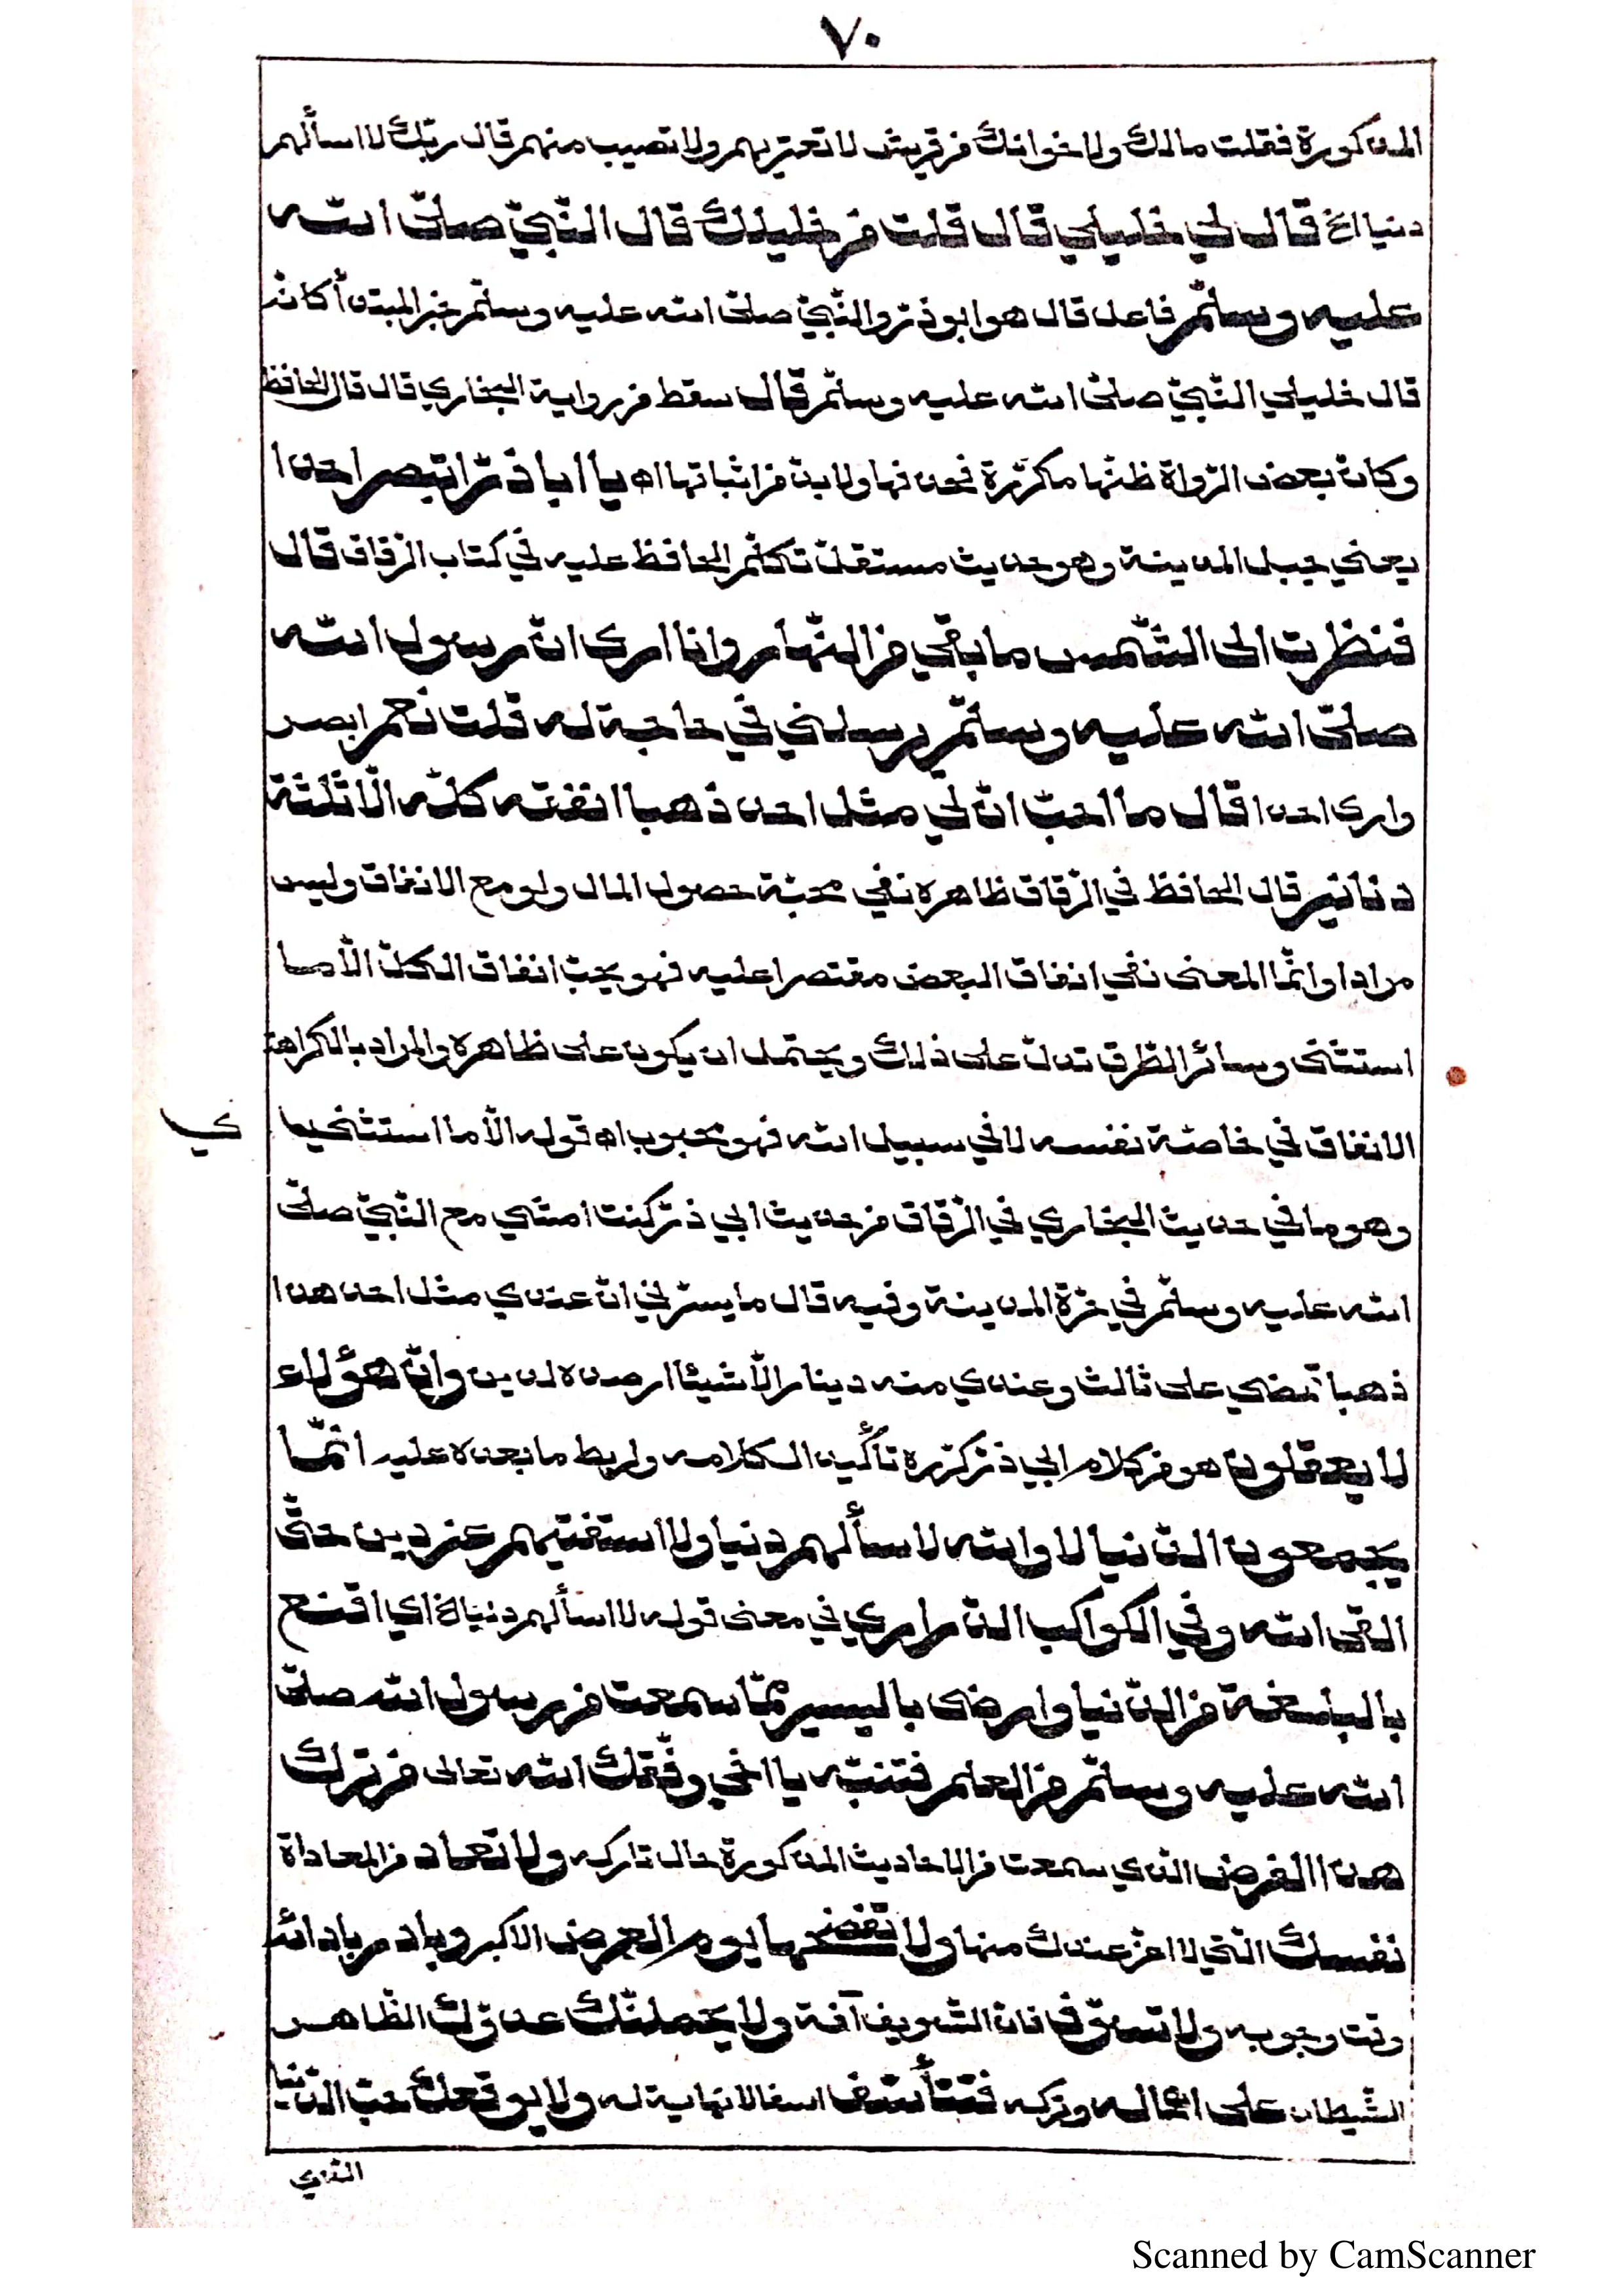 ٧٠
المذكورة فقلت مالك ولاخوانك من قريش لا تعتريهم ولا تصيب منهم قال وربّك لا اسألهم
دنيا الخ قال لي خليلي قال قلت من خليلك قال النّبيّ صلّى الله
عليه وسلّم فاعل قال هو ابو ذرّ والنّبيّ صلّى الله عليه وسلّم خبر المبتدأ كانه
قال خليلي النّبيّ صلّى الله عليه وسلّم قال سقط من رواية البخاري قال قال الحافظ
وكان بعض الرّواة ظنّها مكرّرة فحذفها ولا بدّ من اثباتها اه يا ابا ذرّ اتبصر احدا
يعني جبل المدينة وهو حديث مستقلّ تكلّم الحافظ عليه في كتاب الرّقاق قال
فنظرت الى الشّمس ما بقي من النّهار وانا ارى انّ رسول الله
صلّى الله عليه وسلّم يرسلني في حاجة له قلت نعم ابصر
وارى احدا قال ما احبّ انّ لي مثل احد ذهبا انفقته كلّه الّا ثلثة
دنانير قال الحافظ في الرّقاق ظاهره نفي محبّة حصول المال ولو مع الانفاق وليس
مرادا وانّما المعنى نفي انفاق البعض مقتصرا عليه فهو يحبّ انفاق الكلّ الّا ما
استثنى وسائر الطّرق تدلّ على ذلك ويحتمل ان يكون على ظاهره والمراد بالكراهة
الانفاق في خاصّة نفسه لا في سبيل الله فهو محبوب اه قوله الّا ما استثنى
ي
وهو ما في حديث البخاري في الرّقاق من حديث ابي ذرّ كنت امشي مع النّبيّ صلّى
الله عليه وسلّم في حرّة المدينة وفيه قال ما يسرّني انّ عندي مثل احد هذا
ذهبا تمضي على ثالث وعندي منه دينار الّا شيئا ارصده لدين وانّ هؤلاء
لا يعقلون هو من كلام ابي ذرّ كرّره تأكيدا لكلامه ولربط ما بعده عليه انّما
يجمعون الدّنيا لا والله لا سألهم دنيا ولا استفتيهم عن دين حتّى
القى الله وفي الكواكب الدّراري في معنى قوله لا اسألهم دنيا اي اقنع
بالبلغة من الدّنيا وارضى باليسير ممّا سمعت من رسول الله صلّى
الله عليه وسلّم من العلم فتنبّه يا اخي وفّقك الله تعالى من ترك
هذا الفرض الذي سمعت من الاحاديث المذكورة حال تاركه ولا تعاد من المعاداة
نفسك التي لا اعزّ عندك منها ولا تفضحها يوم العرض الاكبر وبادر بادائه
وقت وجوبه ولا تسوّف فانّ التّسويف آفة ولا يحملنّك عدوّك الظّاهر
الشّيطان على اهماله وتركه فتتأسّف اسفا لا نهاية له ولا يوقعك حبّ الدّنيا
Scanned by CamScanner